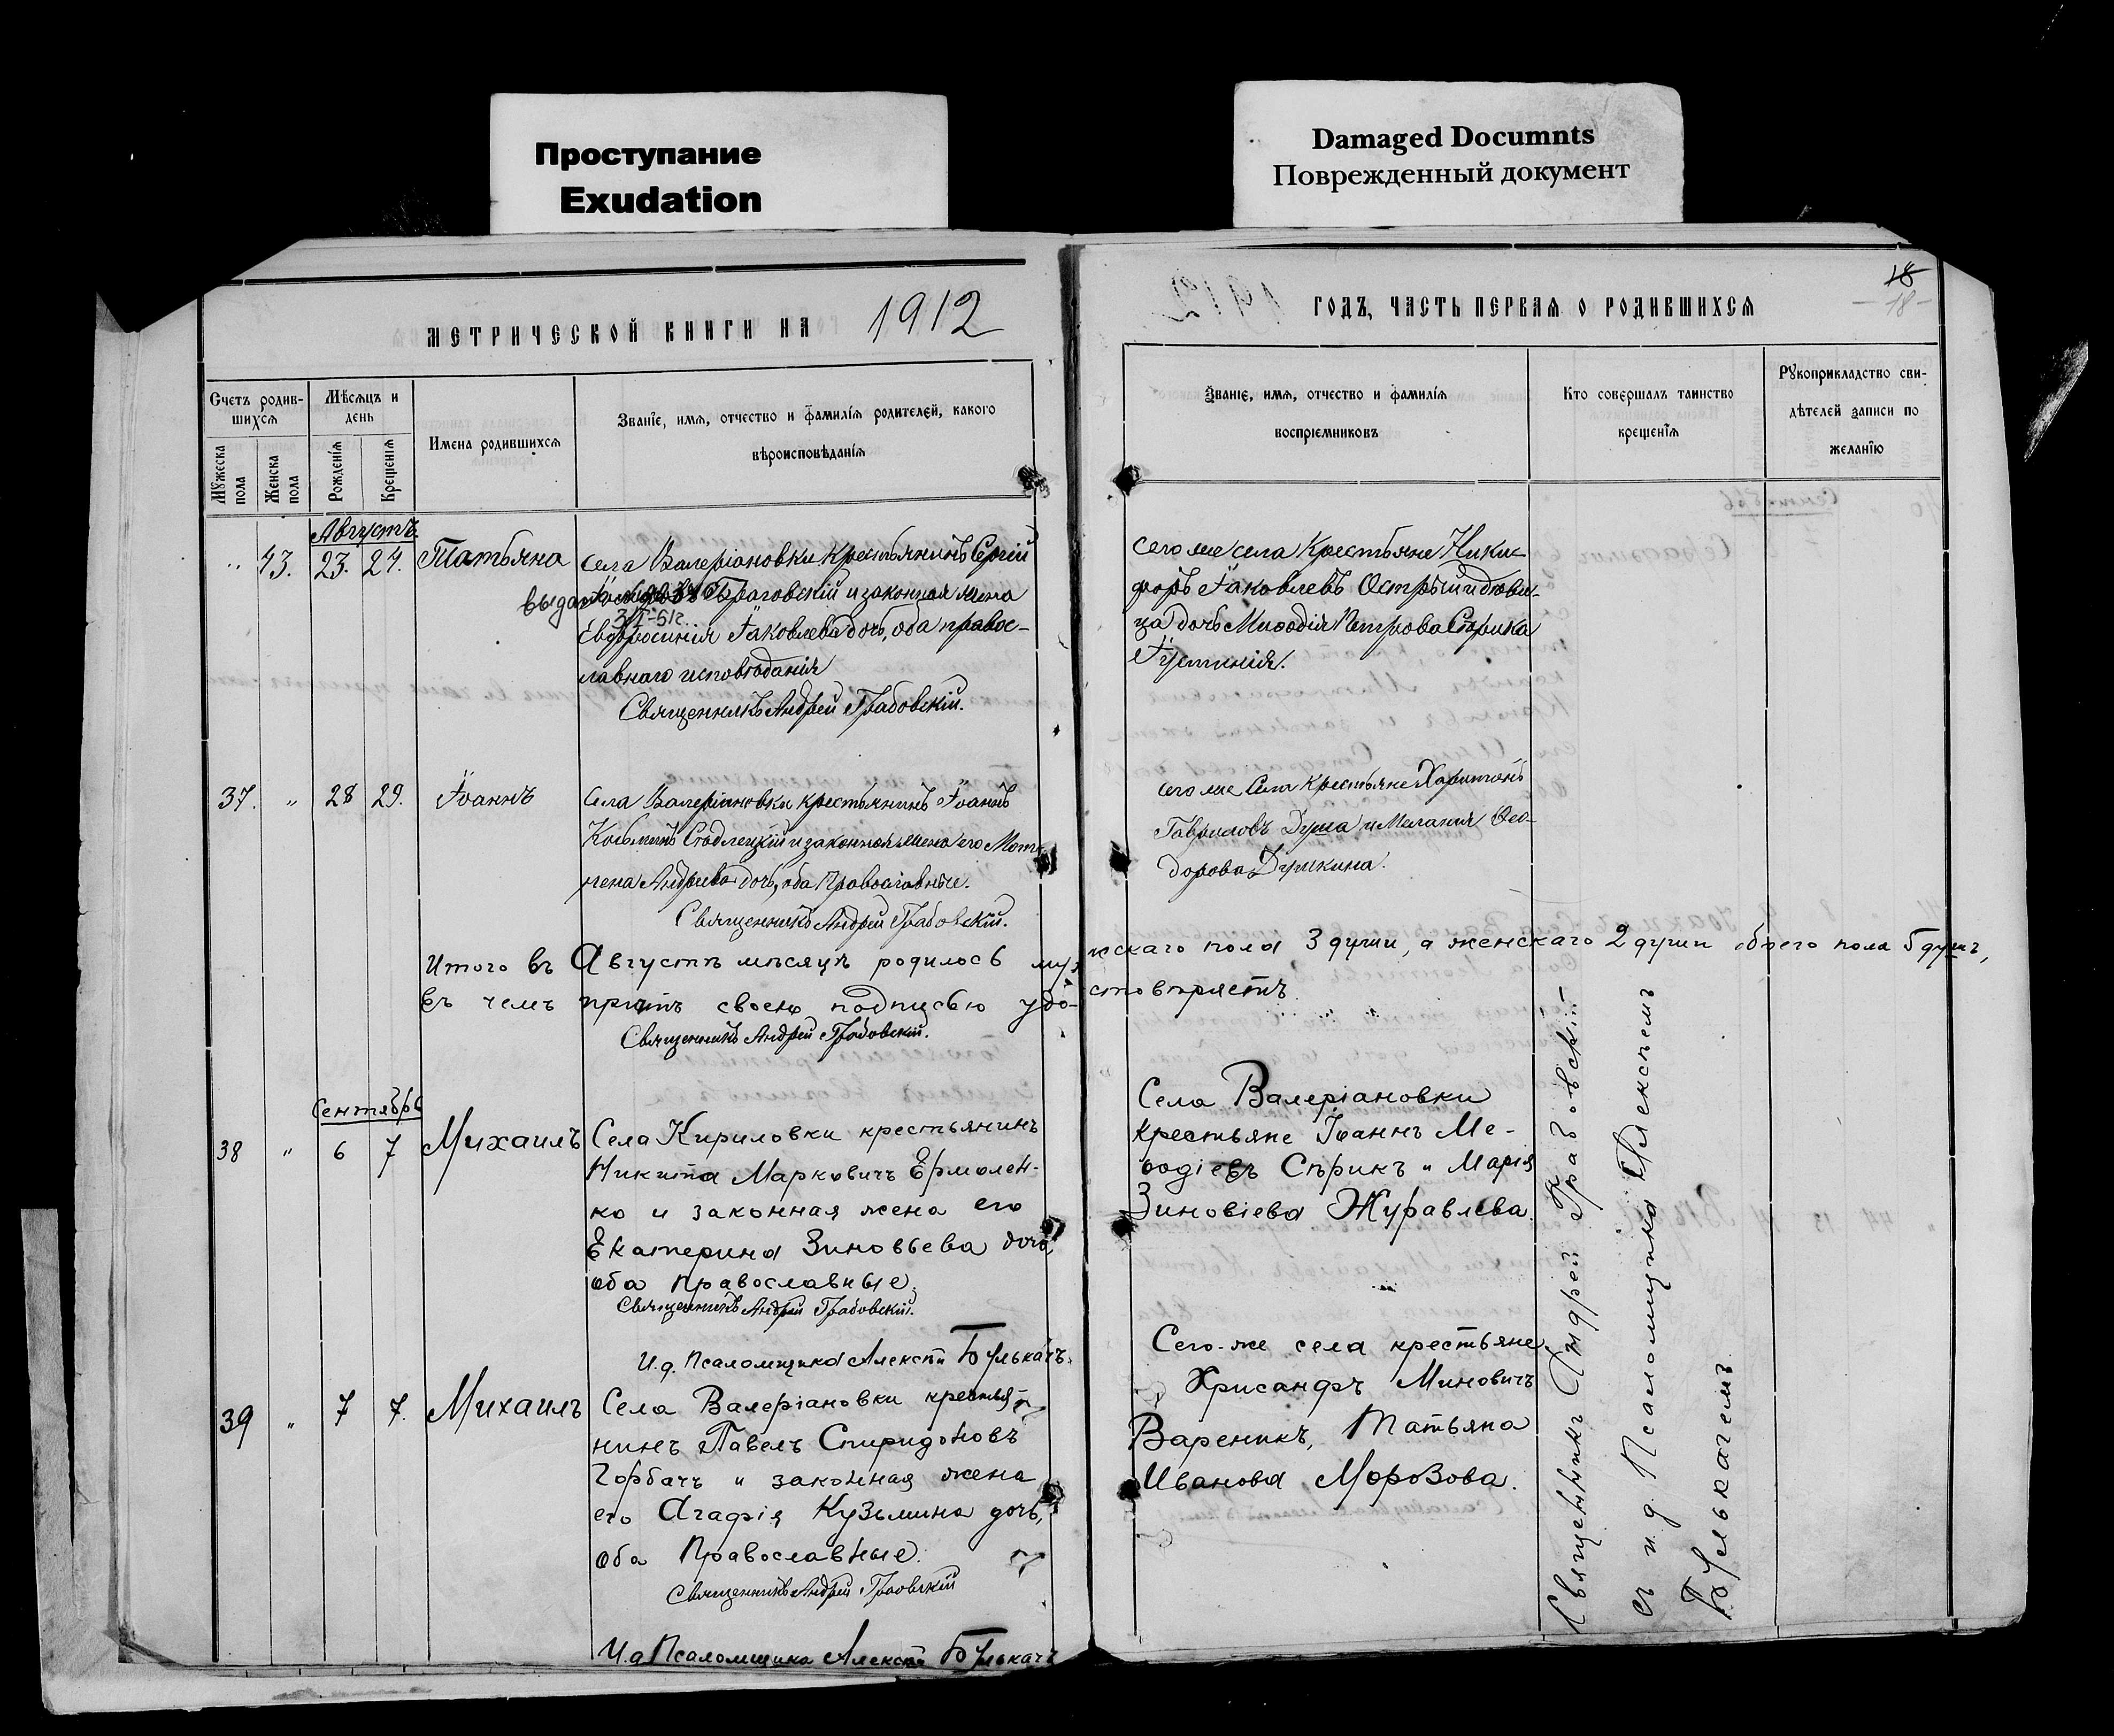 Проступание
Exudation
Damaged Documnts
Поврежденный документ
МЕТРИЧЕСКОЙ КНИГИ НА 1912
Счетъ родив-
шихся
Мѣсяцъ и
день
Имена родившихся
Званіе, имя, отчество и фамилія родителей, какого
вѣроисповѣданія
Мужеска
пола
Женска
пола
Рожденія
Крещенія
Августъ
43. 23. 24. Татьяна
Села Валеріановки крестьянинъ Сергій
выдан
Браговскій и законная жена
Евфросинія Іаковлева дочь, оба правос-
лавнаго исповѣданія
Священникъ Андрей Грабовскій.
37. " 28 29. Іоаннъ
Села Валеріановки крестьянинъ Іоаннъ
и законная жена его Мот-
рена Андреева дочь, оба Православные.
Священникъ Андрей Грабовскій.
Итого въ Августѣ мѣсяцѣ родилось муж
въ чемъ причтъ своею подписью удо-
Священникъ Андрей Грабовскій.
Сентябрь
38 " 6 7 Михаилъ
Села Кириловки крестьянинъ
Никита Марковичъ Ермолен-
ко и законная жена его
Екатерина Зиновьева дочь,
оба православные.
Священникъ Андрей Грабовскій.
И.д. Псаломщика Алексѣй Булькачъ.
39 " 7 7. Михаилъ
Села Валеріановки крестья-
нинъ Павелъ Спиридоновъ
Горбачъ и законная жена
его Агафія Кузьмина дочь,
оба Православные.
Священникъ Андрей Грабовскій
И.д Псаломщика Алексѣй Булькачъ
18
18
ГОДЪ, ЧАСТЬ ПЕРВАЯ О РОДИВШИХСЯ
Званіе, имя, отчество и фамилія
воспріемниковъ
Кто совершалъ таинство
крещенія
Рукоприкладство сви-
дѣтелей записи по
желанію
Сего же села Крестьяне Ники-
форъ Іаковлевъ Острый и дѣви-
ца дочь Меѳодія Петрова Сѣрика
Іустинія.
Сего же Села Крестьяне Харитонъ
Гавриловъ Душа и Меланія Ѳео-
дорова Душкина.
жскаго пола 3 души, а женскаго 2 души обоего пола 5 душъ,
стовѣряетъ
Села Валеріановки
крестьяне Іоаннъ Ме-
ѳодіевъ Сѣрикъ и Марія
Зиновіева Журавлева.
Сего-же села крестьяне
Хрисанфъ Миновичъ
Вареникъ, Татьяна
Иванова Морозова.
Священникъ Андрей Грабовскій
съ и. д. Псаломщика Алексѣемъ
Булькачемъ